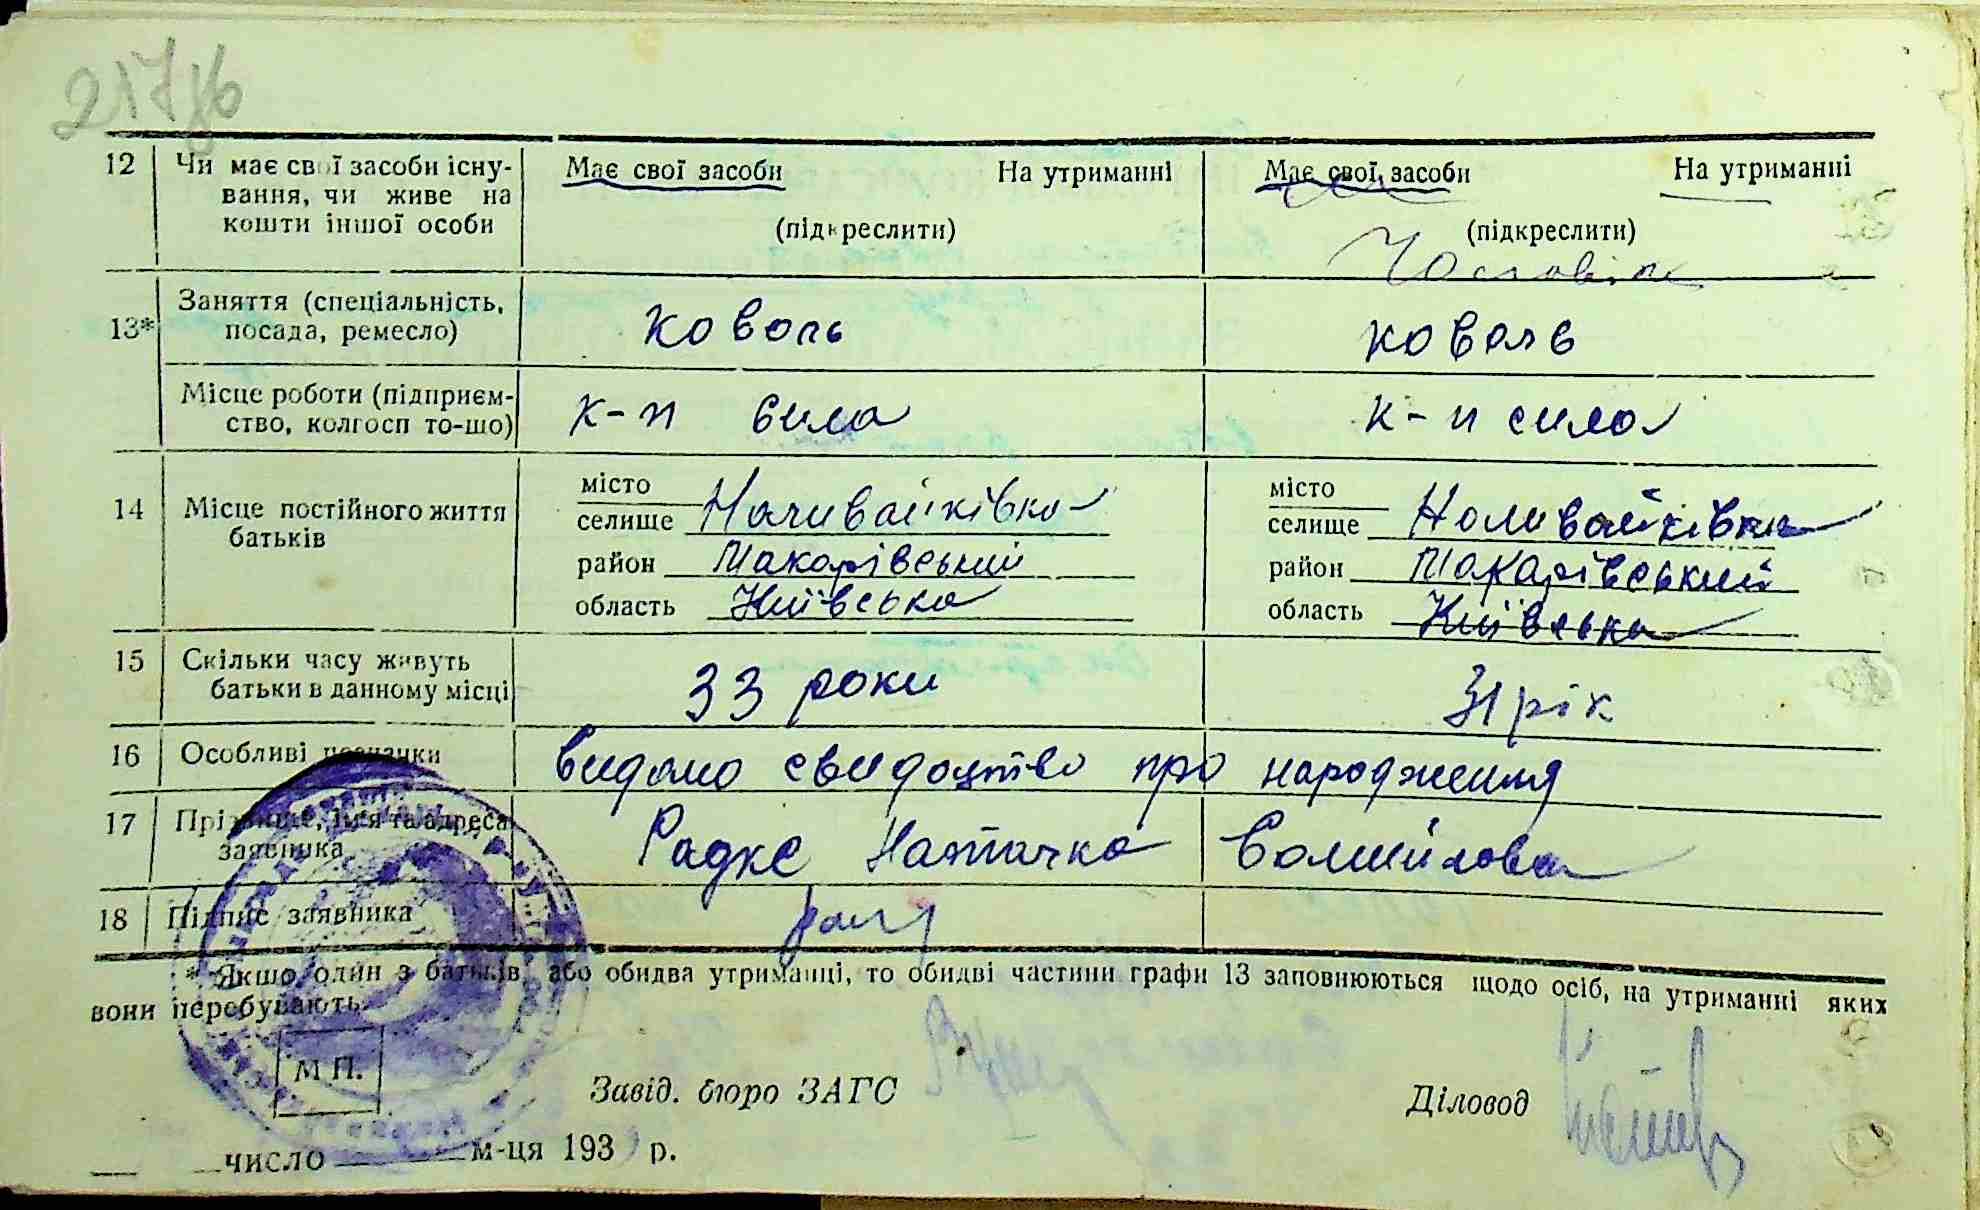 217зв
12 Чи має свої засоби існу- Має свої засоби На утриманні Має свої засоби На утриманні
вання, чи живе на
кошти іншої особи (підкреслити) (підкреслити)
Чоловік
Заняття (спеціальність,
13* посада, ремесло) коваль коваль
Місце роботи (підприєм-
ство, колгосп то-що) к-п сила к-п сила
місто місто
14 Місце постійного життя селище Наливайківка селище Наливайківка
батьків район Макарівський район Макарівський
область Київська область Київська
15 Скільки часу живуть
батьки в данному місці 33 роки 31 рік
16 Особливі позначки видано свидоцтво про народження
17 Прізвище, ім'я та адреса
заявника Радке Наталка Самійлова
18 Підпис заявника
* Якщо один з батьків або обидва утриманці, то обидві частини графи 13 заповнюються щодо осіб, на утриманні яких
вони перебувають.
М П.
Завід. бюро ЗАГС Діловод
число м-ця 193 р.